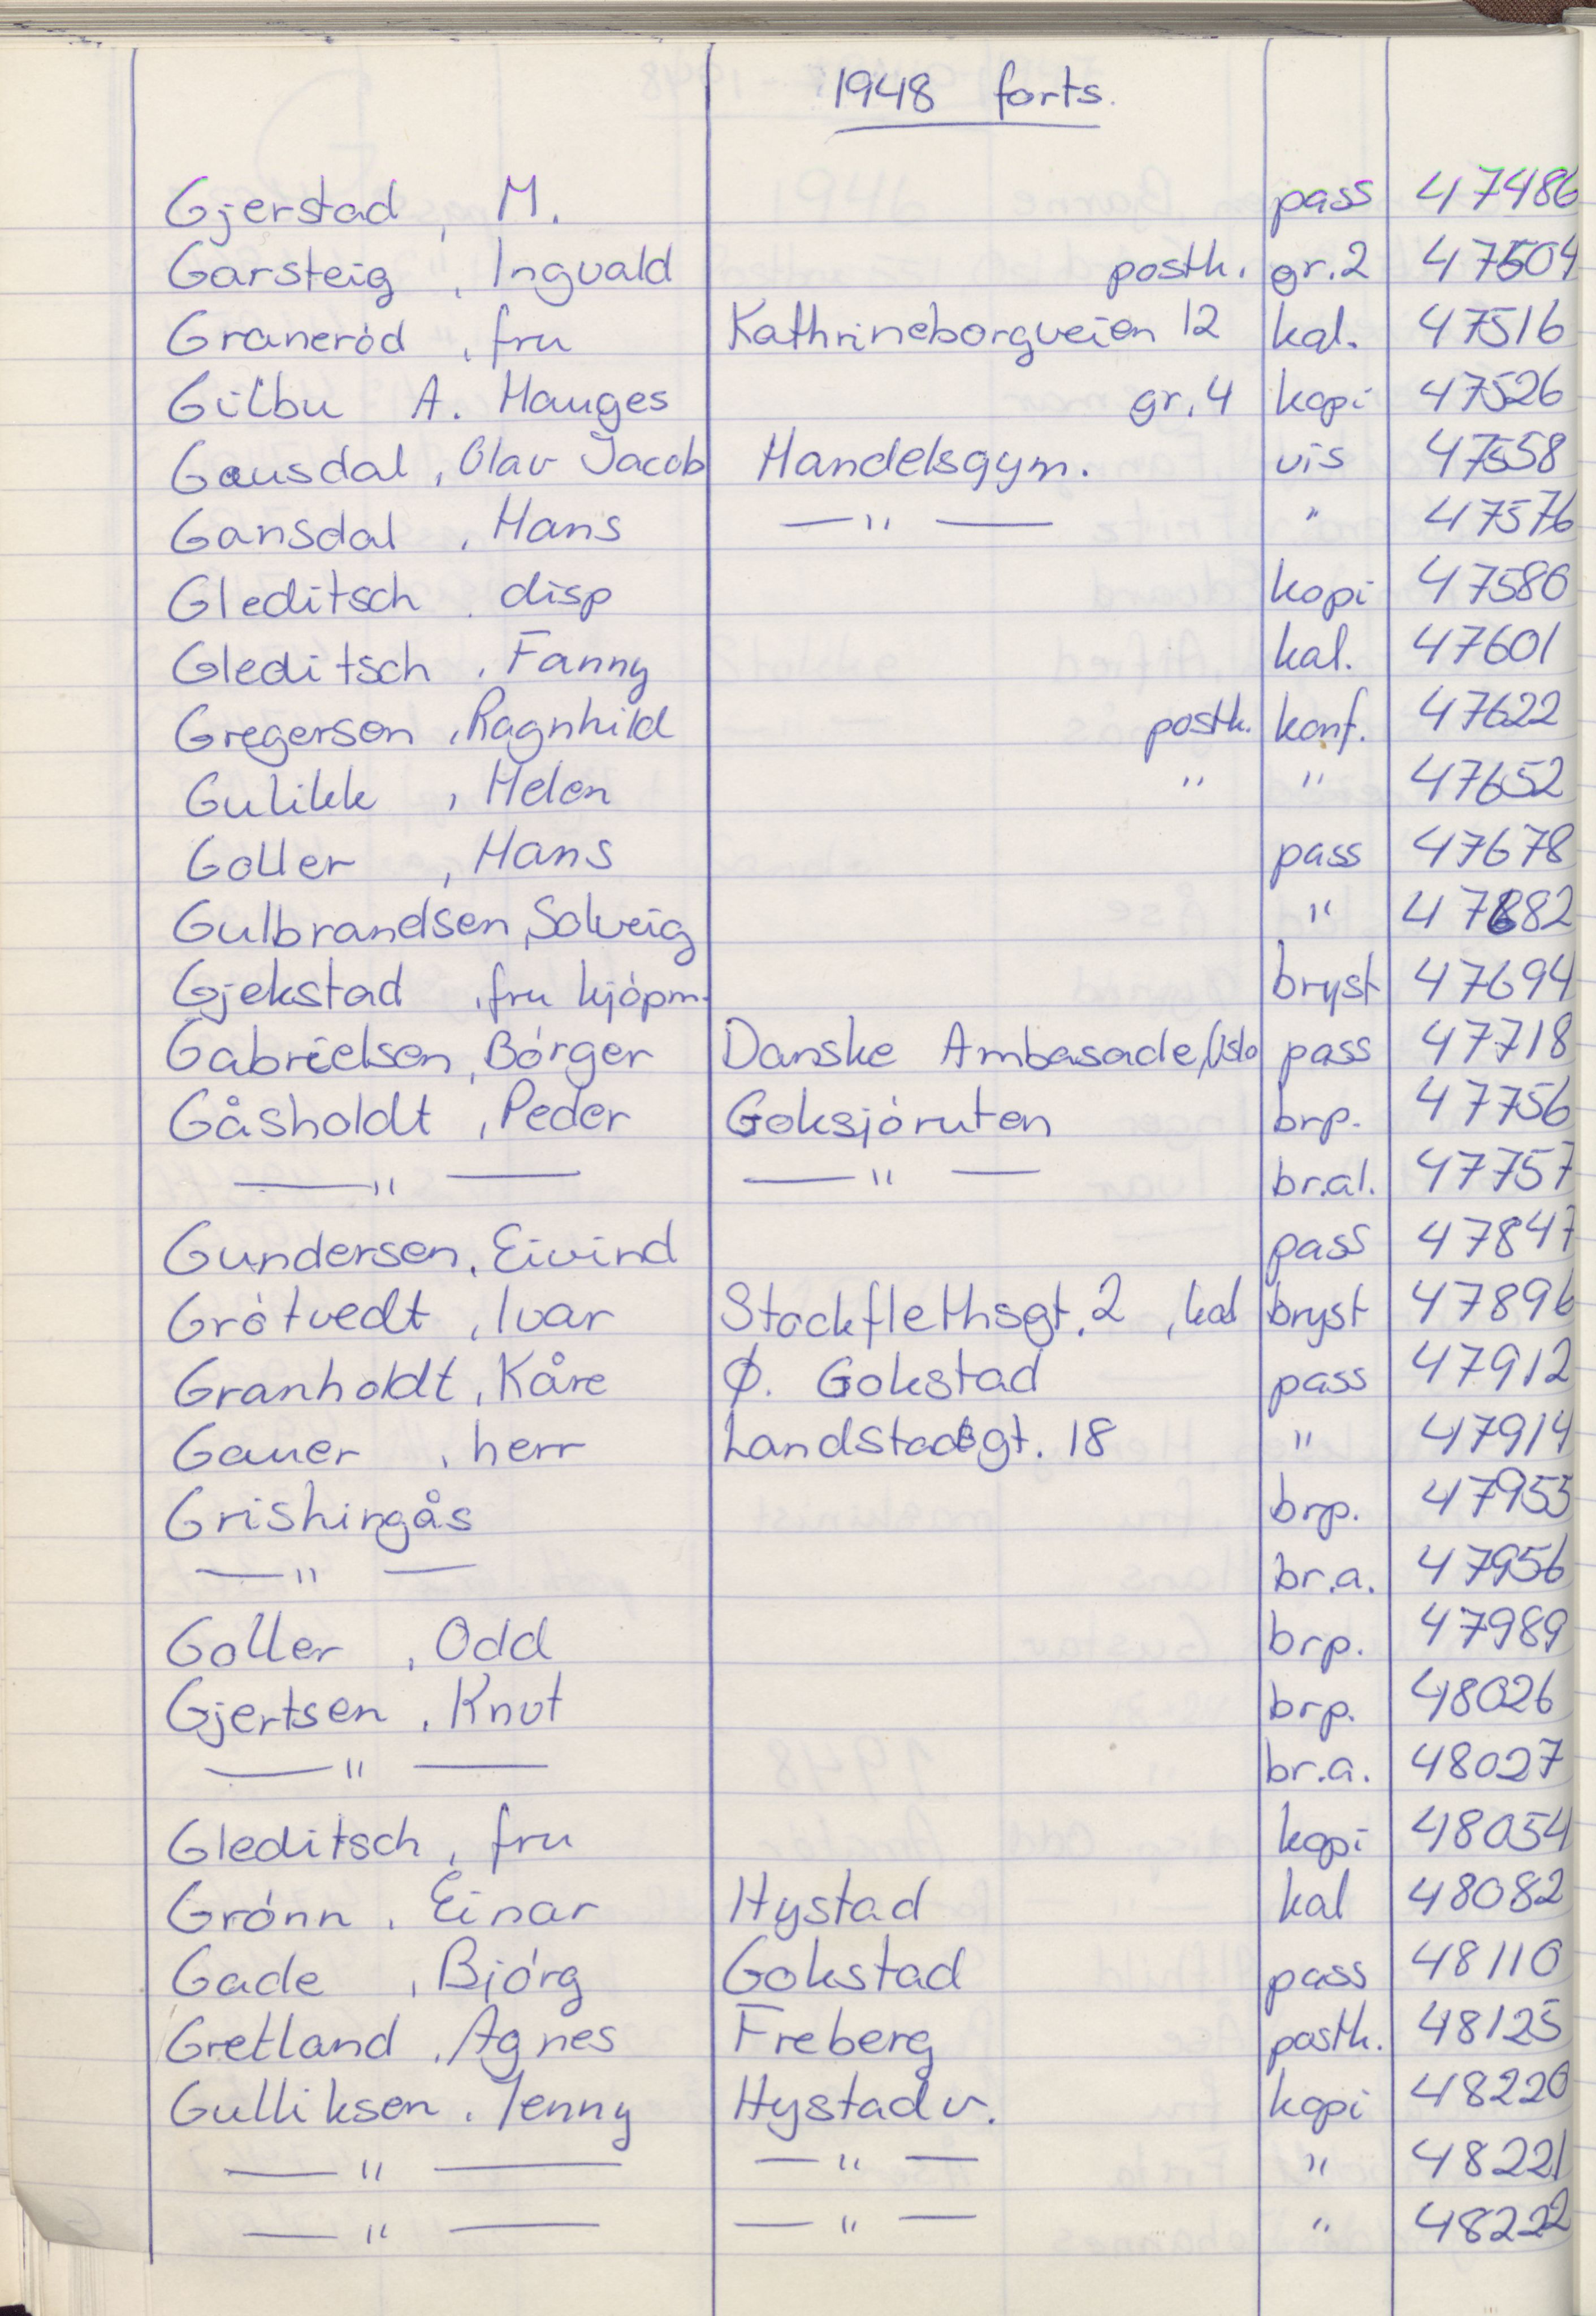 1948 forts.
Gjerstad, M. pass 47486
Garsteig, Ingvald postk. gr.2 47504
Graneród, fru Kathrineborgveien 12 kal. 47516
Gilbu A. Hauges gr.4 kopi 47526
Gausdal, Olav Jacob Handelsgym. vis 47558
Gansdal, Hans —"— " 47576
Gleditsch, disp kopi 47586
Gleditsch, Fanny kal. 47601
Gregersen, Ragnhild postk. konf. 47622
Gulikk, Helen " " 47652
Goller, Hans pass 47678
Gulbrandsen, Solveig " 47682
Gjekstad, fru kjópm. bryst 47694
Gabrielsen, Bórger Danske Ambasade, Oslo pass 47718
Gåsholdt, Peder Goksjóruten brp. 47756
—"— —"— br.al. 47757
Gundersen, Eivind pass 47847
Grótvedt, Ivar Stockflethsgt. 2, kal bryst 47896
Granholdt, Kåre Ø. Gokstad pass 47912
Gauer, herr Landstadsgt. 18 " 47914
Grishingås brp. 47955
—"— br.a. 47956
Goller, Odd brp. 47989
Gjertsen, Knut brp. 48026
—"— br.a. 48027
Gleditsch, fru kopi 48054
Grónn, Einar Hystad kal 48082
Gade, Bjórg Gokstad pass 48110
Gretland, Agnes Freberg postk. 48125
Gulliksen, Jenny Hystadv. kopi 48220
—"— —"— " 48221
—"— —"— " 48222